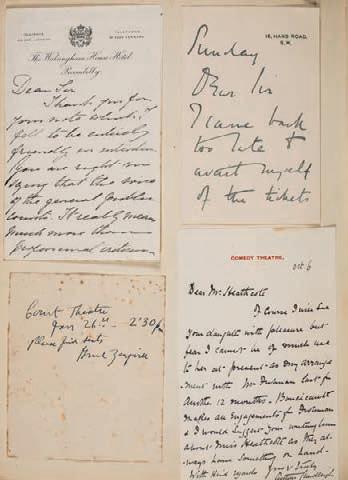 The Walsingham House Hotel
Piccadilly
Dear Sir
Thank you for
your note which I
felt to be entirely
friendly in
You are right in
saying that the voice
of the general public
counts. It really means
much more than
professional
16, HANS ROAD,
S.W.
Sunday
Dear Sir
I came back
too late to
avail myself
of the tickets
Court Theatre
Jan 26th 2.30
Please find seats
COMEDY THEATRE,
Oct 6
Dear Mr Heathcote
Of course I will see
your daughter with pleasure but
fear I cannot be of much use
to her at present as my arrange
ment with Mr Frohman lasts for
another 12 months.
makes all engagements for Frohman
& I would suggest your writing him
about Miss Heathcote as they al-
ways have something on hand.
With kind regards
Yrs v truly